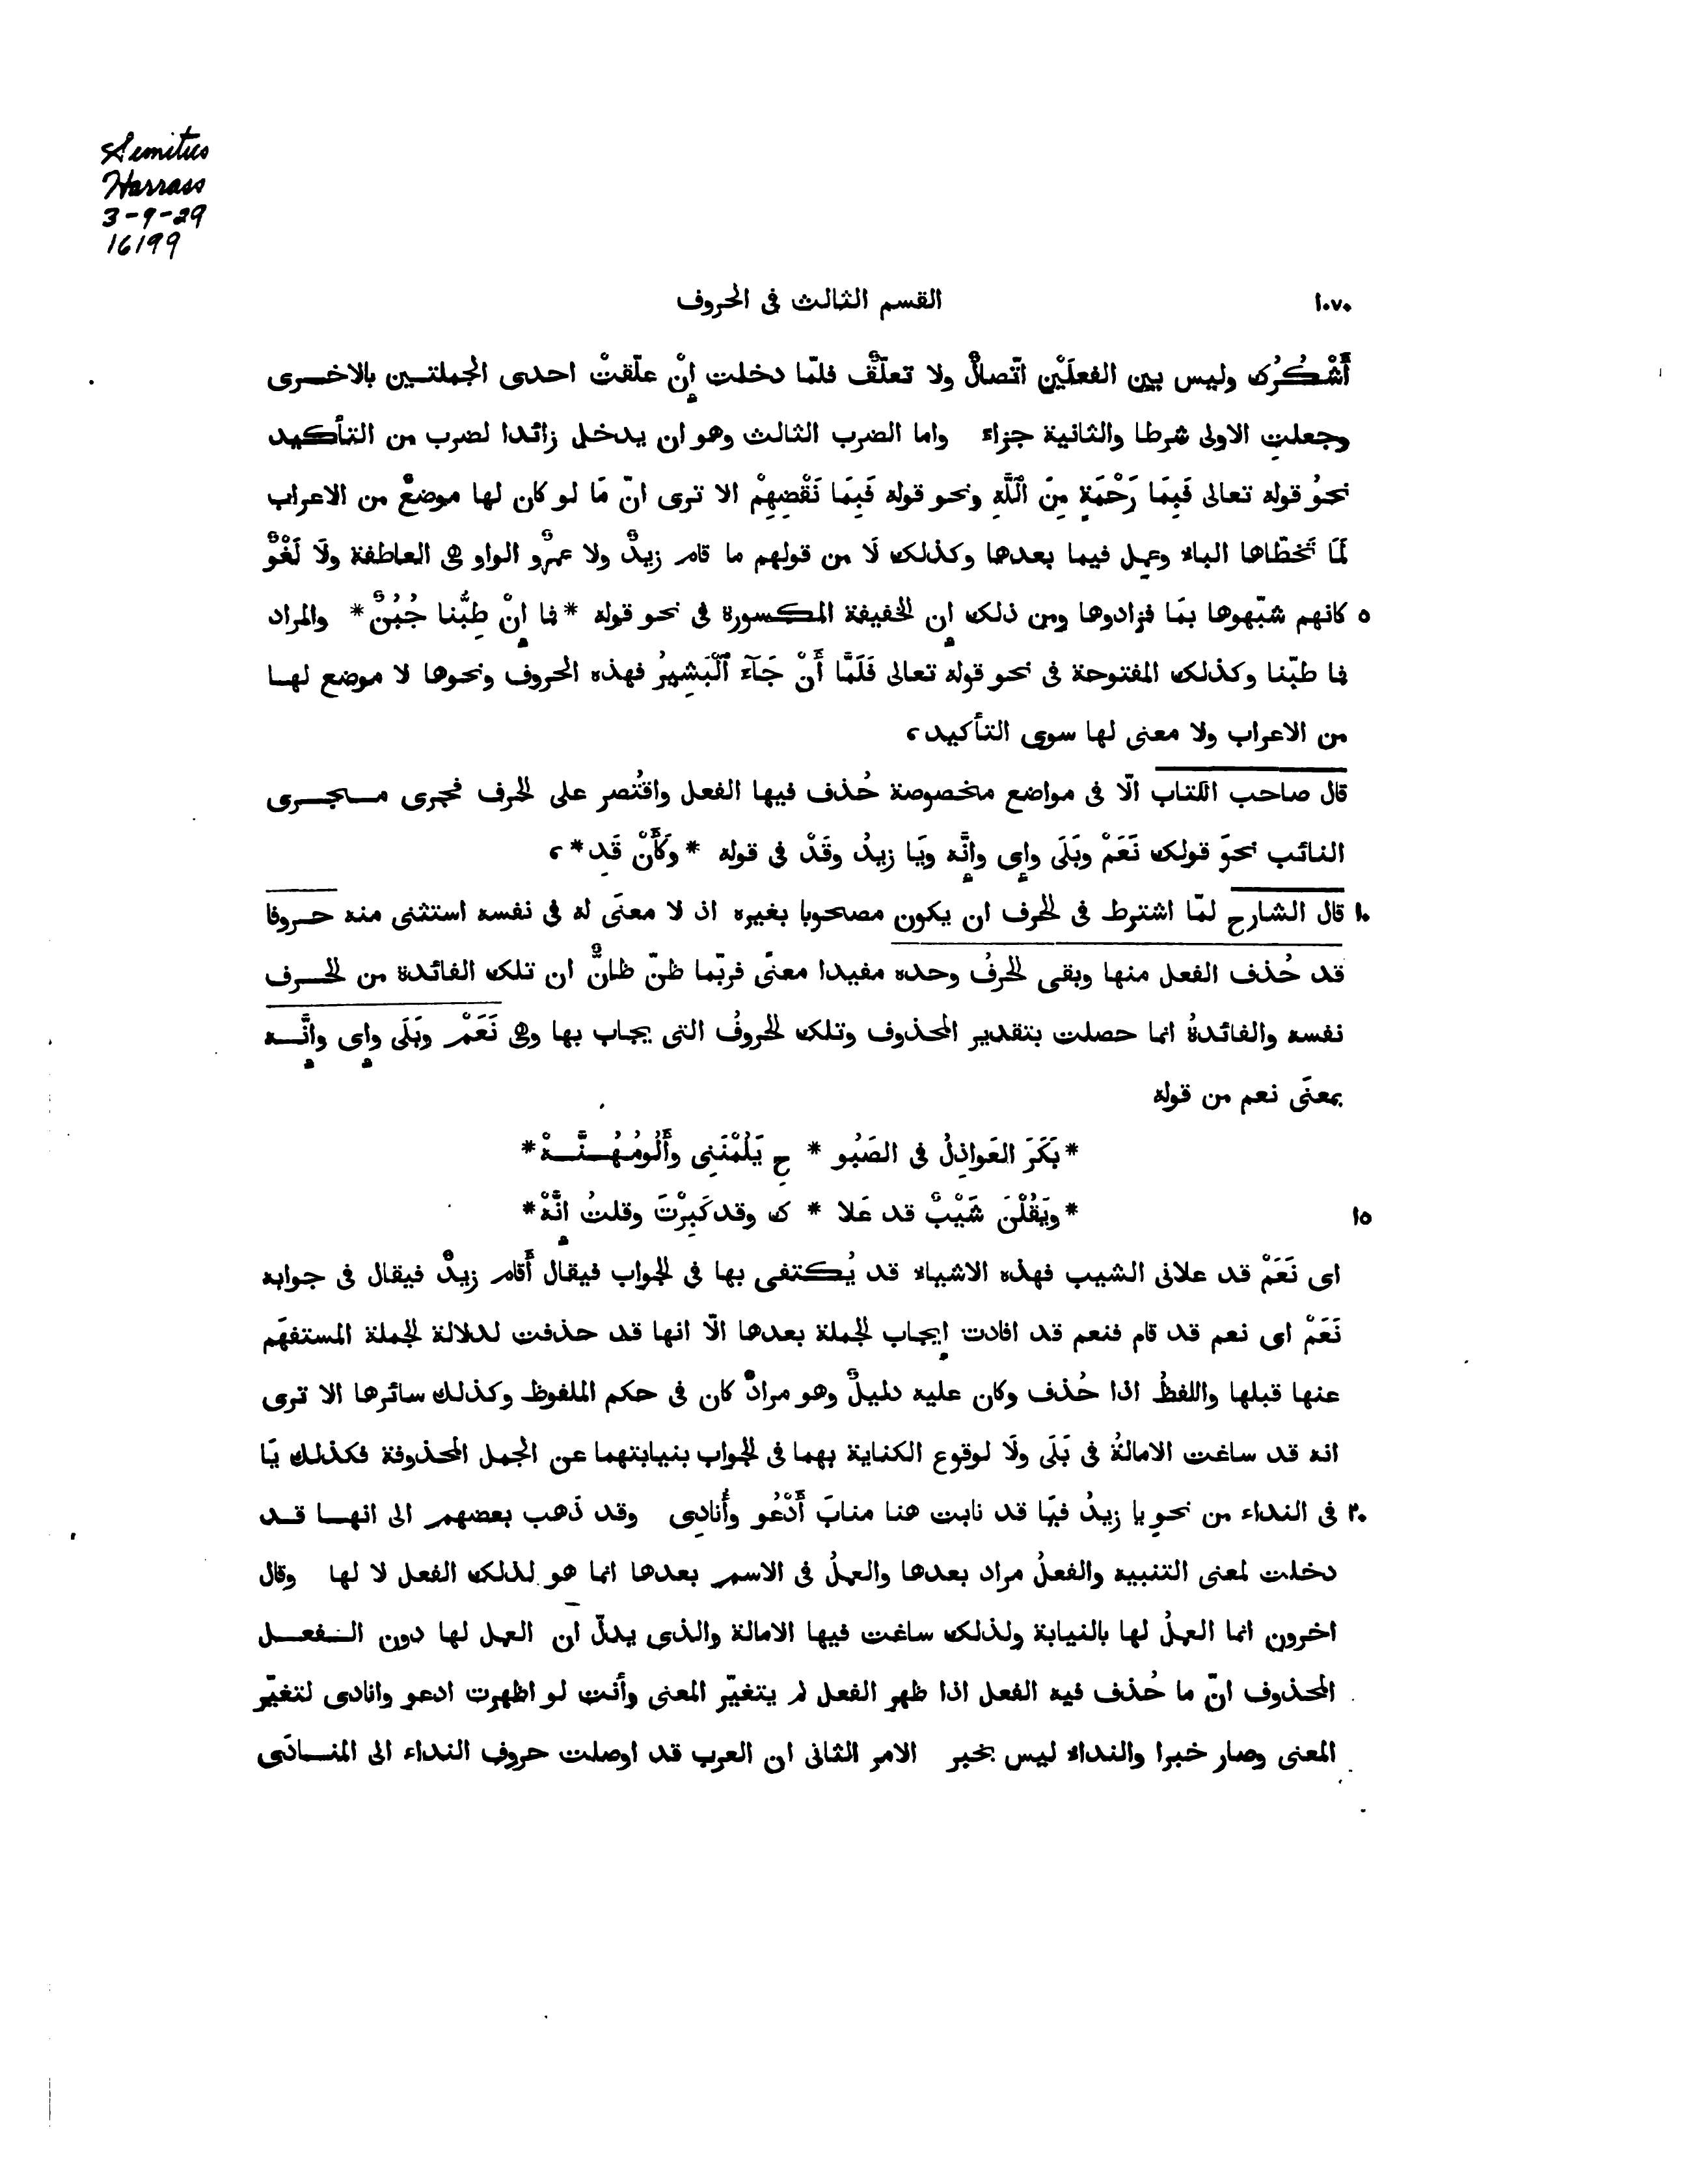 Semitics
Harrass
3-9-29
16199
١٠٧٠ القسم الثالث فى الحروف
أَشْكُرْك وليس بين الفعلَيْن اتّصالٌ ولا تعلّقٌ فلمّا دخلت إِنْ علّقتْ احدى الجملتين بالاخرى
وجعلتِ الاولى شرطا والثانية جزاء واما الضرب الثالث وهو ان يدخل زائدا لضرب من التأكيد
نحوُ قوله تعالى فَبِمَا رَحْمَةٍ مِنَ ٱللَّهِ ونحو قوله فَبِمَا نَقْضِهِمْ الا ترى انّ مَا لو كان لها موضعٌ من الاعراب
لَمَا تَخطّاها الباء وعمِل فيما بعدها وكذلك لَا من قولهم ما قام زيدٌ ولا عمرٌو الواو هى العاطفة ولَا لَغْوٌ
٥ كانهم شبّهوها بمَا فزادوها ومن ذلك إِن الخفيفة المكسورة فى نحو قوله * فما إِنْ طِبُّنا جُبُنٌ * والمراد
فما طبّنا وكذلك المفتوحة فى نحو قوله تعالى فَلَمَّا أَنْ جَآءَ ٱلْبَشِيرُ فهذه الحروف ونحوها لا موضع لها
من الاعراب ولا معنى لها سوى التأكيد،
قال صاحب الكتاب الّا فى مواضع مخصوصة حُذف فيها الفعل واقتُصر على الحرف فجرى مجرى
النائب نحوَ قولك نَعَمْ وبَلَى وإِى وإِنَّه ويَا زيدُ وقَدْ فى قوله * وكَأَنْ قَدِ *،
١٠ قال الشارح لمّا اشترط فى الحرف ان يكون مصحوبا بغيره اذ لا معنَى له فى نفسه استثنى منه حروفا
قد حُذف الفعل منها وبقى الحرفُ وحده مفيدا معنًى فربّما ظنّ ظانٌّ ان تلك الفائدة من الحرف
نفسه والفائدةُ انما حصلت بتقدير المحذوف وتلك الحروفُ التى يجاب بها وهى نَعَمْ وبَلَى وإِى وإِنَّه
بمعنَى نعم من قوله
* بَكَرَ العَواذِلُ فى الصَبُو * حِ يَلُمْنَنِى وأَلُومُهُنَّهْ *
١٥ * ويَقُلْنَ شَيْبٌ قد عَلا * ك وقد كَبِرْتَ وقلتُ إِنَّهْ *
اى نَعَمْ قد علانى الشيب فهذه الاشياء قد يُكتفى بها فى الجواب فيقال أَقام زيدٌ فيقال فى جوابه
نَعَمْ اى نعم قد قام فنعم قد افادت إيجاب الجملة بعدها الّا انها قد حذفت لدلالة الجملة المستفهَم
عنها قبلها واللفظُ اذا حُذف وكان عليه دليلٌ وهو مرادٌ كان فى حكم الملفوظ وكذلك سائرها الا ترى
انه قد ساغت الامالةُ فى بَلَى ولَا لوقوع الكناية بهما فى الجواب بنيابتهما عن الجمل المحذوفة فكذلك يَا
٢٠ فى النداء من نحو يا زيدُ فيَا قد نابت هنا منابَ أَدْعُو وأُنادِى وقد ذَهب بعضهم الى انها قد
دخلت لمعنى التنبيه والفعلُ مراد بعدها والعملُ فى الاسم بعدها انما هو لذلك الفعل لا لها وقال
اخرون انما العملُ لها بالنيابة ولذلك ساغت فيها الامالة والذى يدلّ ان العمل لها دون الفعل
المحذوف انّ ما حُذف فيه الفعل اذا ظهر الفعل لم يتغيّر المعنى وأنت لو اظهرت ادعو وانادى لتغيّر
المعنى وصار خبرا والنداء ليس بخبر الامر الثانى ان العرب قد اوصلت حروف النداء الى المنادَى